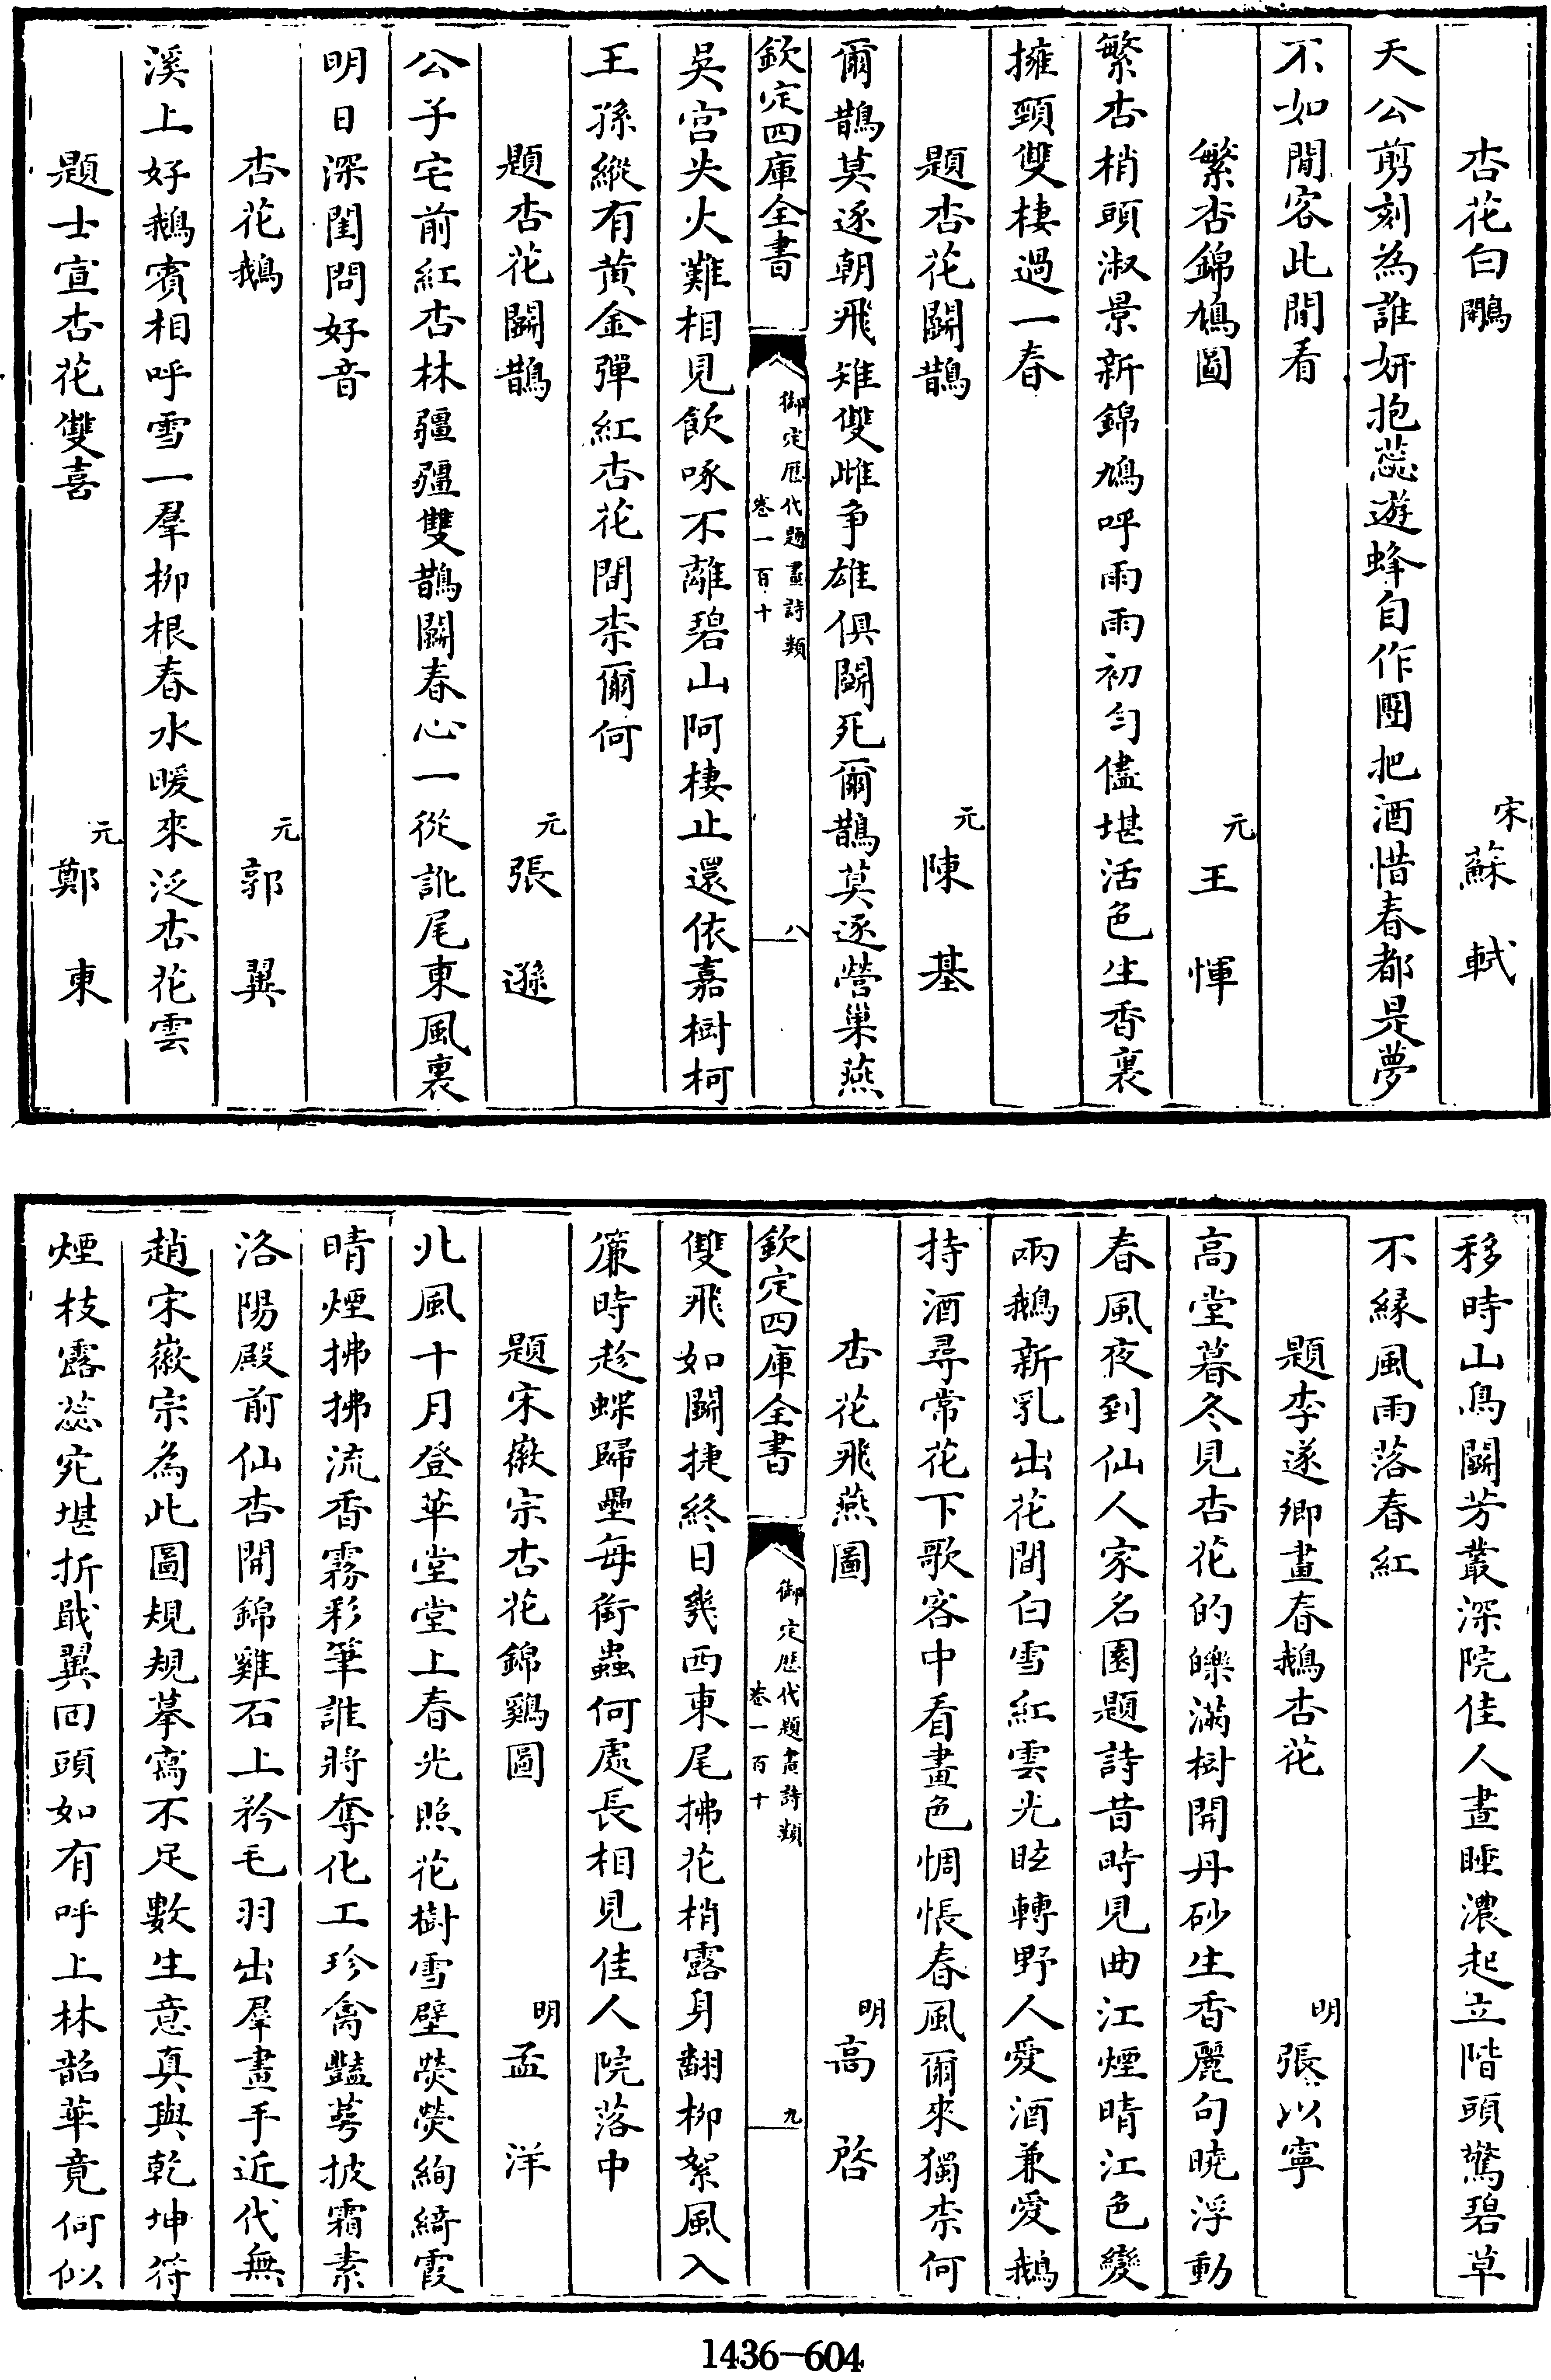 杏花白鷴　宋蘇軾
天公剪刻為誰妍抱蕊遊蜂自作團把酒惜春都是夢
不如閒客此閒看
繁杏錦鳩圖　元王惲
繁杏梢頭淑景新錦鳩呼雨雨初勻儘堪活色生香裏
擁頸雙棲過一春
題杏花鬭鵲　元陳基
爾鵲莫逐朝飛雉雙雌爭雄俱鬭死爾鵲莫逐營巢燕
欽定四庫全書　御定歷代題畫詩類卷一百十　八
吳宮失火難相見飲啄不離碧山阿棲止還依嘉樹柯
王孫縱有黄金彈紅杏花間柰爾何
題杏花鬭鵲　元張遜
公子宅前紅杏林疆疆雙鵲鬭春心一從訛尾東風裏
明日深閨問好音
杏花鵝　元郭翼
溪上好鵝賓相呼雪一羣栁根春水暖來泛杏花雲
題士宣杏花雙喜　元鄭東
移時山鳥鬭芳叢深院佳人晝睡濃起立階頭驚碧草
不縁風雨落春紅
題李遂卿畫春鵝杏花　明張以寧
高堂暮冬見杏花的皪滿樹開丹砂生香麗句曉浮動
春風夜到仙人家名園題詩昔時見曲江煙晴江色變
兩鵝新乳出花間白雪紅雲光眩轉野人愛酒兼愛鵝
持酒尋常花下歌客中看畫色惆悵春風爾來獨柰何
杏花飛燕圖　明高啓
欽定四庫全書　御定歷代題畫詩類卷一百十　九
雙飛如鬭捷終日幾西東尾拂花梢露身翻栁絮風入
簾時趁蝶歸壘每銜蟲何處長相見佳人院落中
題宋徽宗杏花錦鷄圖　明孟洋
北風十月登華堂堂上春光照花樹雪壁熒熒絢綺霞
晴煙拂拂流香霧彩筆誰將奪化工珍禽豔萼披霜素
洛陽殿前仙杏開錦雞石上矜毛羽出羣畫手近代無
趙宋徽宗為此圖規規摹寫不足數生意真與乾坤符
煙枝露蕊宛堪折戢翼回頭如有呼上林韶華竟何似
1436-604